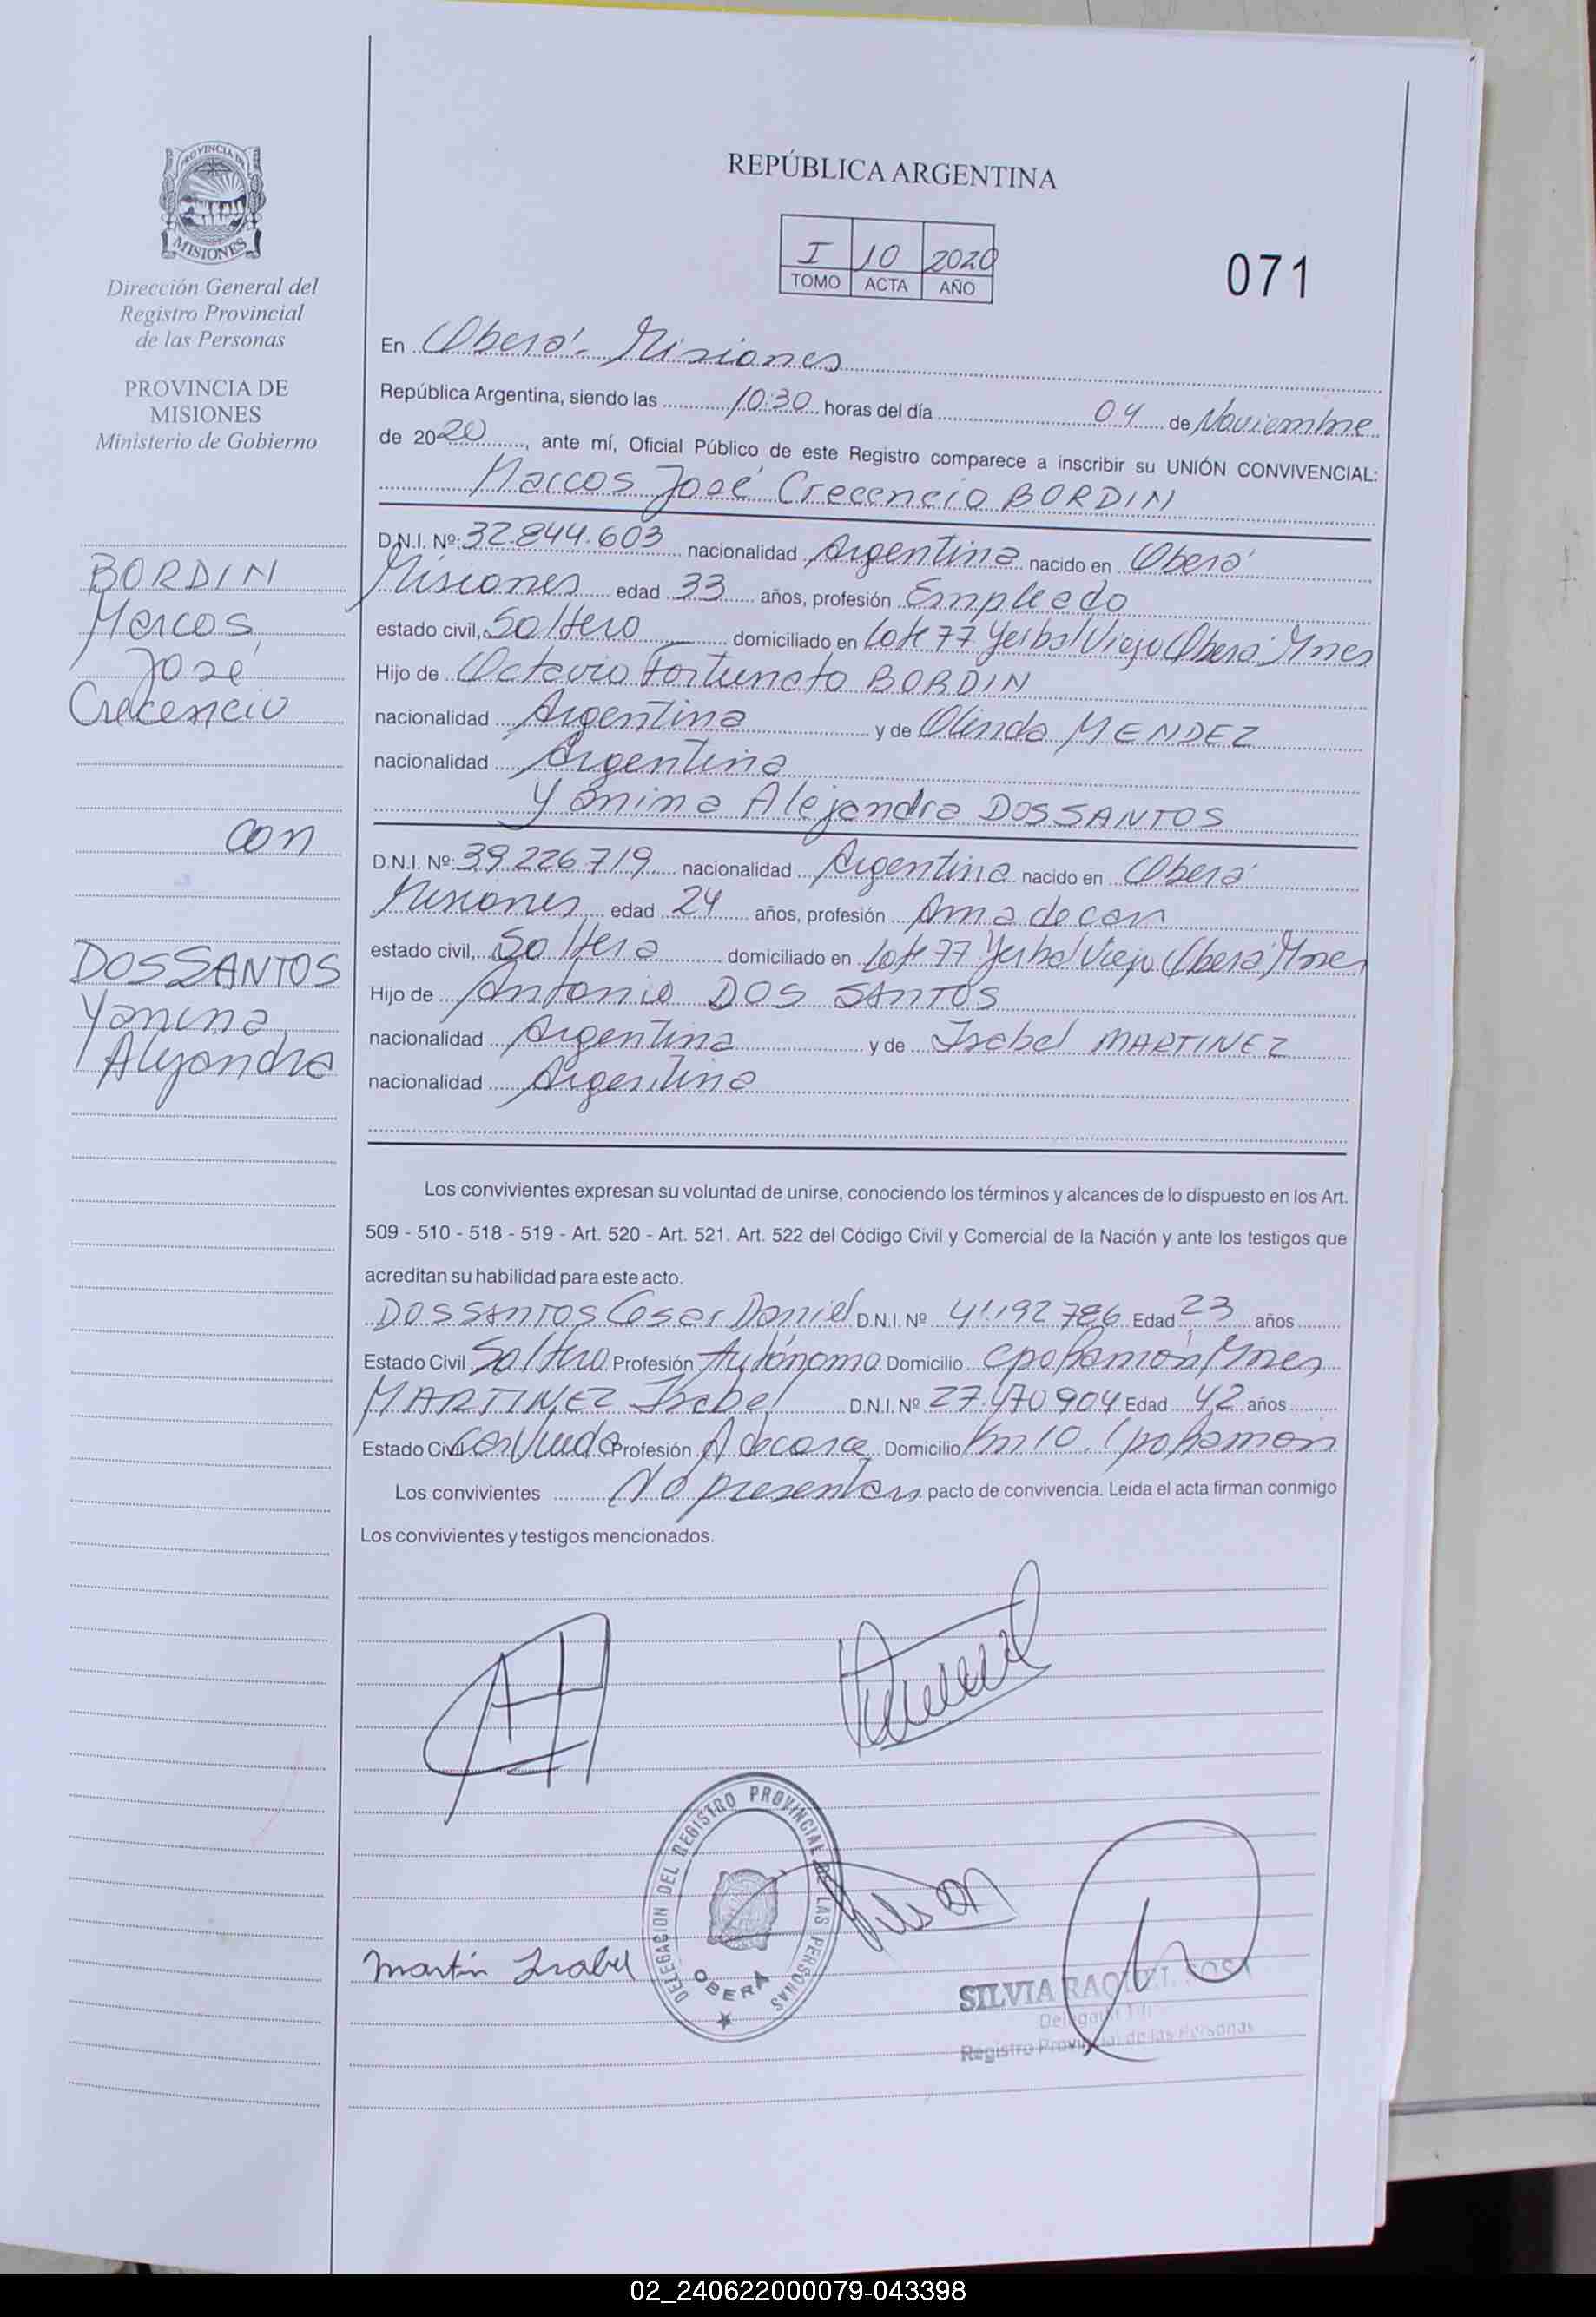 PROVINCIA DE
MISIONES
Dirección General del
Registro Provincial
de las Personas
PROVINCIA DE
MISIONES
Ministerio de Gobierno
BORDIN
Marcos
José
Crecencio
con
DOSSANTOS
Yanina
Alejandra
REPÚBLICA ARGENTINA
I 10 2020
TOMO ACTA AÑO
071
En Oberá - Misiones
República Argentina, siendo las 10:30 horas del día 04 de Noviembre
de 2020, ante mí, Oficial Público de este Registro comparece a inscribir su UNIÓN CONVIVENCIAL:
Marcos José Crecencio BORDIN
D.N.I. Nº: 32.844.603 nacionalidad Argentina nacido en Oberá
Misiones edad 33 años, profesión Empleado
estado civil, Soltero domiciliado en Lote 77 Yerbal Viejo Oberá Mnes
Hijo de Octavio Fortunato BORDIN
nacionalidad Argentina y de Olinda MENDEZ
nacionalidad Argentina
Yanina Alejandra DOSSANTOS
D.N.I. Nº: 39.226.719 nacionalidad Argentina nacido en Oberá
Misiones edad 24 años, profesión Ama de casa
estado civil, Soltera domiciliado en Lote 77 Yerbal Viejo Oberá Mnes
Hijo de Antonio DOS SANTOS
nacionalidad Argentina y de Isabel MARTINEZ
nacionalidad Argentina
Los convivientes expresan su voluntad de unirse, conociendo los términos y alcances de lo dispuesto en los Art.
509 - 510 - 518 - 519 - Art. 520 - Art. 521. Art. 522 del Código Civil y Comercial de la Nación y ante los testigos que
acreditan su habilidad para este acto.
DOSSANTOS Cesar Daniel D.N.I. Nº 41.192786 Edad 23 años
Estado Civil Soltero Profesión Autónomo Domicilio Mnes
MARTINEZ Isabel D.N.I. Nº 27.470904 Edad 42 años
Estado Civil Profesión A de casa Domicilio Km 10.
Los convivientes No presentan pacto de convivencia. Leída el acta firman conmigo
Los convivientes y testigos mencionados.
DELEGACION DEL REGISTRO PROVINCIAL DE LAS PERSONAS
OBERA
Martin Isabel
SILVIA RAQUEL SOSA
Registro Provincial de las Personas
02_240622000079-043398